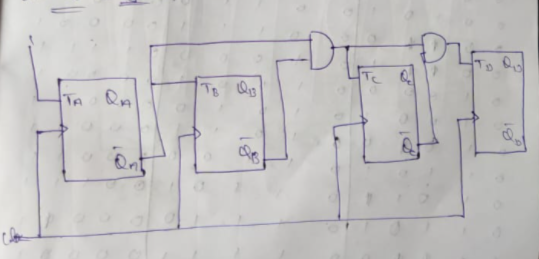 1
T_A Q_A
Q̄_A
T_B Q_B
Q̄_B
T_C Q_C
Q̄_C
T_D Q_D
Q̄_D